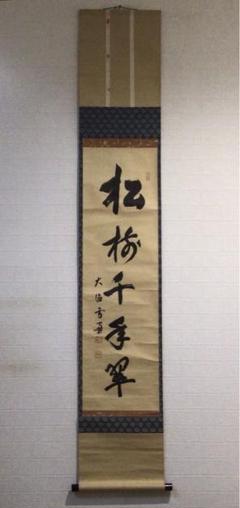 松樹千年翠
大徳